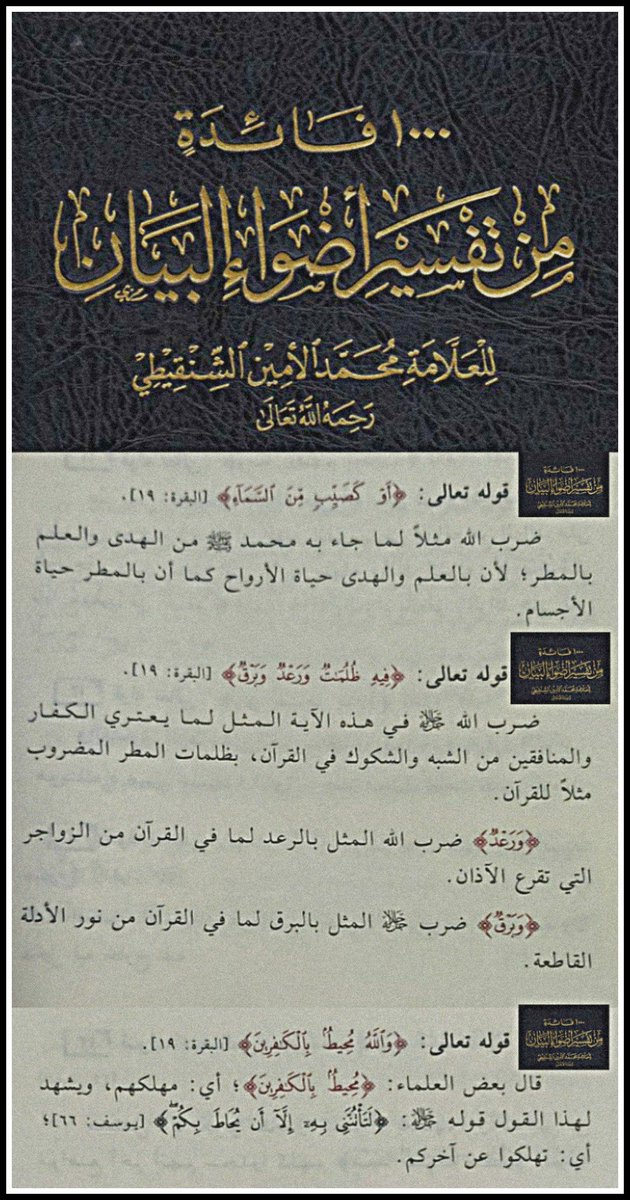 ١٠٠٠ فَائِدَةٍ
مِن تَفْسِيرِ أَضْوَاءِ البَيَانِ
لِلْعَلَّامَةِ مُحَمَّدَ الأَمِين الشِّنْقِيطِي
رَحِمَهُ اللَّهُ تَعَالَى
قوله تعالى: ﴿أَوْ كَصَيِّبٍ مِّنَ السَّمَآءِ﴾ [البقرة: ١٩].
ضرب الله مثلاً لما جاء به محمد ﷺ من الهدى والعلم
بالمطر؛ لأن بالعلم والهدى حياة الأرواح كما أن بالمطر حياة
الأجسام.
قوله تعالى: ﴿فِيهِ ظُلُمَٰتٌ وَرَعْدٌ وَبَرْقٌ﴾ [البقرة: ١٩].
ضرب الله ﷻ في هذه الآية المثل لما يعتري الكفار
والمنافقين من الشبه والشكوك في القرآن، بظلمات المطر المضروب
مثلاً للقرآن.
﴿وَرَعْدٌ﴾ ضرب الله المثل بالرعد لما في القرآن من الزواجر
التي تقرع الآذان.
﴿وَبَرْقٌ﴾ ضرب ﷻ المثل بالبرق لما في القرآن من نور الأدلة
القاطعة.
قوله تعالى: ﴿وَاللَّهُ مُحِيطٌۢ بِالْكَٰفِرِينَ﴾ [البقرة: ١٩].
قال بعض العلماء: ﴿مُحِيطٌۢ بِالْكَٰفِرِينَ﴾؛ أي: مهلكهم، ويشهد
لهذا القول قوله ﷻ: ﴿لَتَأْتُنَّنِي بِهِۦٓ إِلَّآ أَن يُحَاطَ بِكُمْ﴾ [يوسف: ٦٦]؛
أي: تهلكوا عن آخركم.